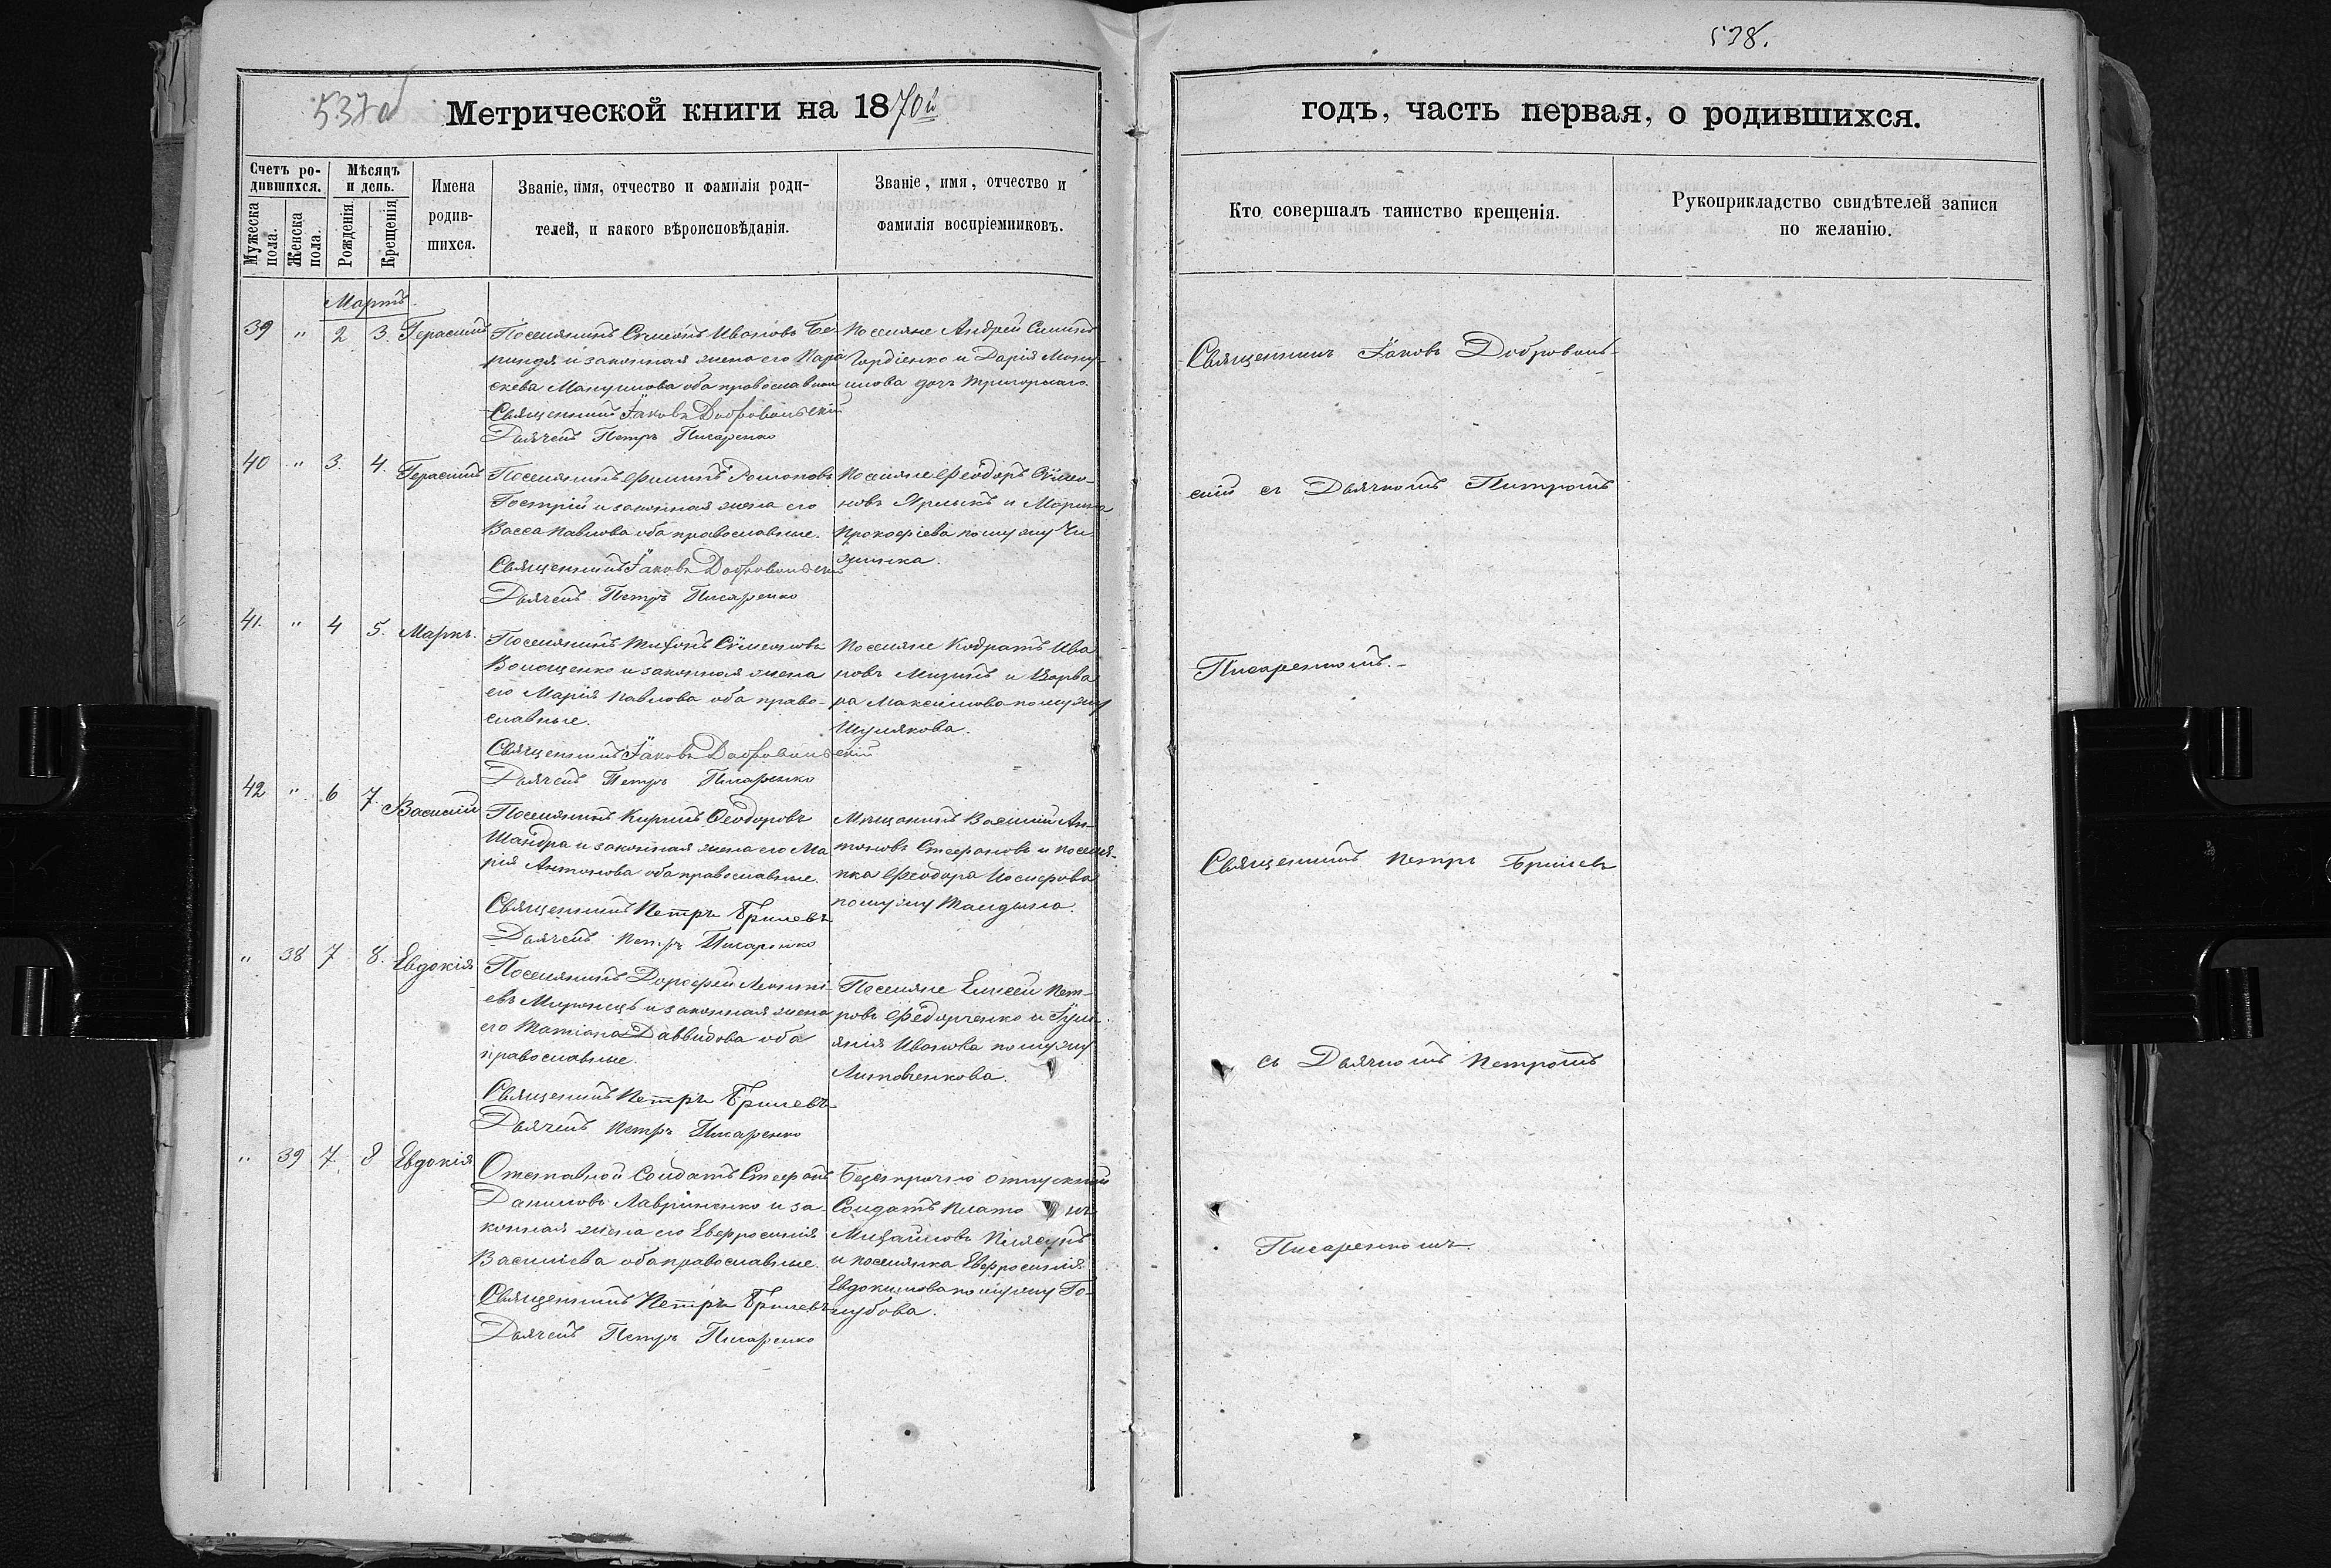 538.
537об
Метрической книги на 1870й
годъ, часть первая, о родившихся.
Счетъ родившихся.
Мужеска пола.
Женска пола.
Мѣсяцъ и день.
Рожденія
Крещенія
Имена родившихся.
Званіе, имя, отчество и фамилія родителей, и какого вѣроисповѣданія.
Званіе, имя, отчество и фамилія воспріемниковъ.
Кто совершалъ таинство крещенія.
Рукоприкладство свидѣтелей записи по желанію.
Мартъ
39 " 2 3. Герасимъ
Поселянинъ Сѵмеонъ Ивановъ Бе-
риндя и законная жена его Пара
скева Мануилова оба православные
Священникъ Іаковъ Добровольскій
Дьячекъ Петръ Писаренко
Поселяне Андрей
Гордіенко и Дарія Ману-
илова дочь Григорьева.
40 " 3. 4. Герасимъ
Поселянинъ Филипъ Романовъ
Гострій и законная жена его
Васса Павлова оба православные.
Священникъ Іаковъ Добровольскій
Дьячекъ Петръ Писаренко
Поселяне Феодоръ Сѵмео-
новъ Ярлыкъ и Марина
Прокофіева по мужу
41. " 4 5. Маркъ.
Поселянинъ Тихонъ Сѵмеоновъ
Волощенко и законная жена
его Марія Павлова оба право-
славные.
Священникъ Іаковъ Добровольскій
Дьячекъ Петръ Писаренко
Поселяне Кодратъ Ива
новъ Мизинъ и Варва
ра Максимова по мужу
Шулякова.
42 " 6 7 Василій
Поселянинъ Кирилъ Феодоровъ
Шандра и законная жена его Ма
рія Антонова оба православные.
Священникъ Петръ Брилевъ
Дьячекъ Петръ Писаренко
Мѣщанинъ Василій Ан-
тоновъ Стефановъ и поселя-
нка Феодора Иосифова
по мужу
" 38 7 8. Евдокія
Поселянинъ Дорофей Леонті-
евъ Миронецъ и законная жена
его Татіана Даввидова оба
православные.
Священникъ Петръ Брилевъ
Дьячекъ Петръ Писаренко
Поселяне Елисей Пет-
ровъ Федорченко и Іулі-
янія Иванова по мужу
Литовченкова.
" 39 7. 8 Евдокія
Отставной Солдатъ Стефанъ
Даниловъ Лавриненко и за-
конная жена его Евфросинія
Василіева оба православные.
Священникъ Петръ Брилевъ
Дьячекъ Петръ Писаренко
Безсрочно отпускный
Солдатъ Плато нъ
Михайловъ Плясунъ
и поселянка Евфросинія
Евдокимова по мужу Го-
лубова.
Священникъ Іаковъ Доброволь-
скій съ Дьячкомъ Петромъ
Писаренкомъ.-
Священникъ Петръ Брилевъ
съ Дьячкомъ Петромъ
Писаренкомъ.